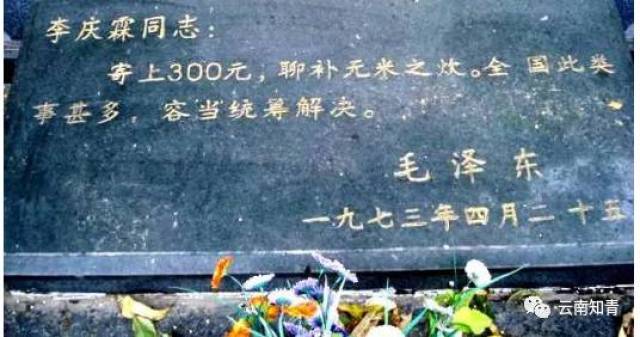 李庆霖同志：
寄上300元，聊补无米之炊。全国此类
事甚多，容当统筹解决。
毛泽东
一九七三年四月二十五
云南知青